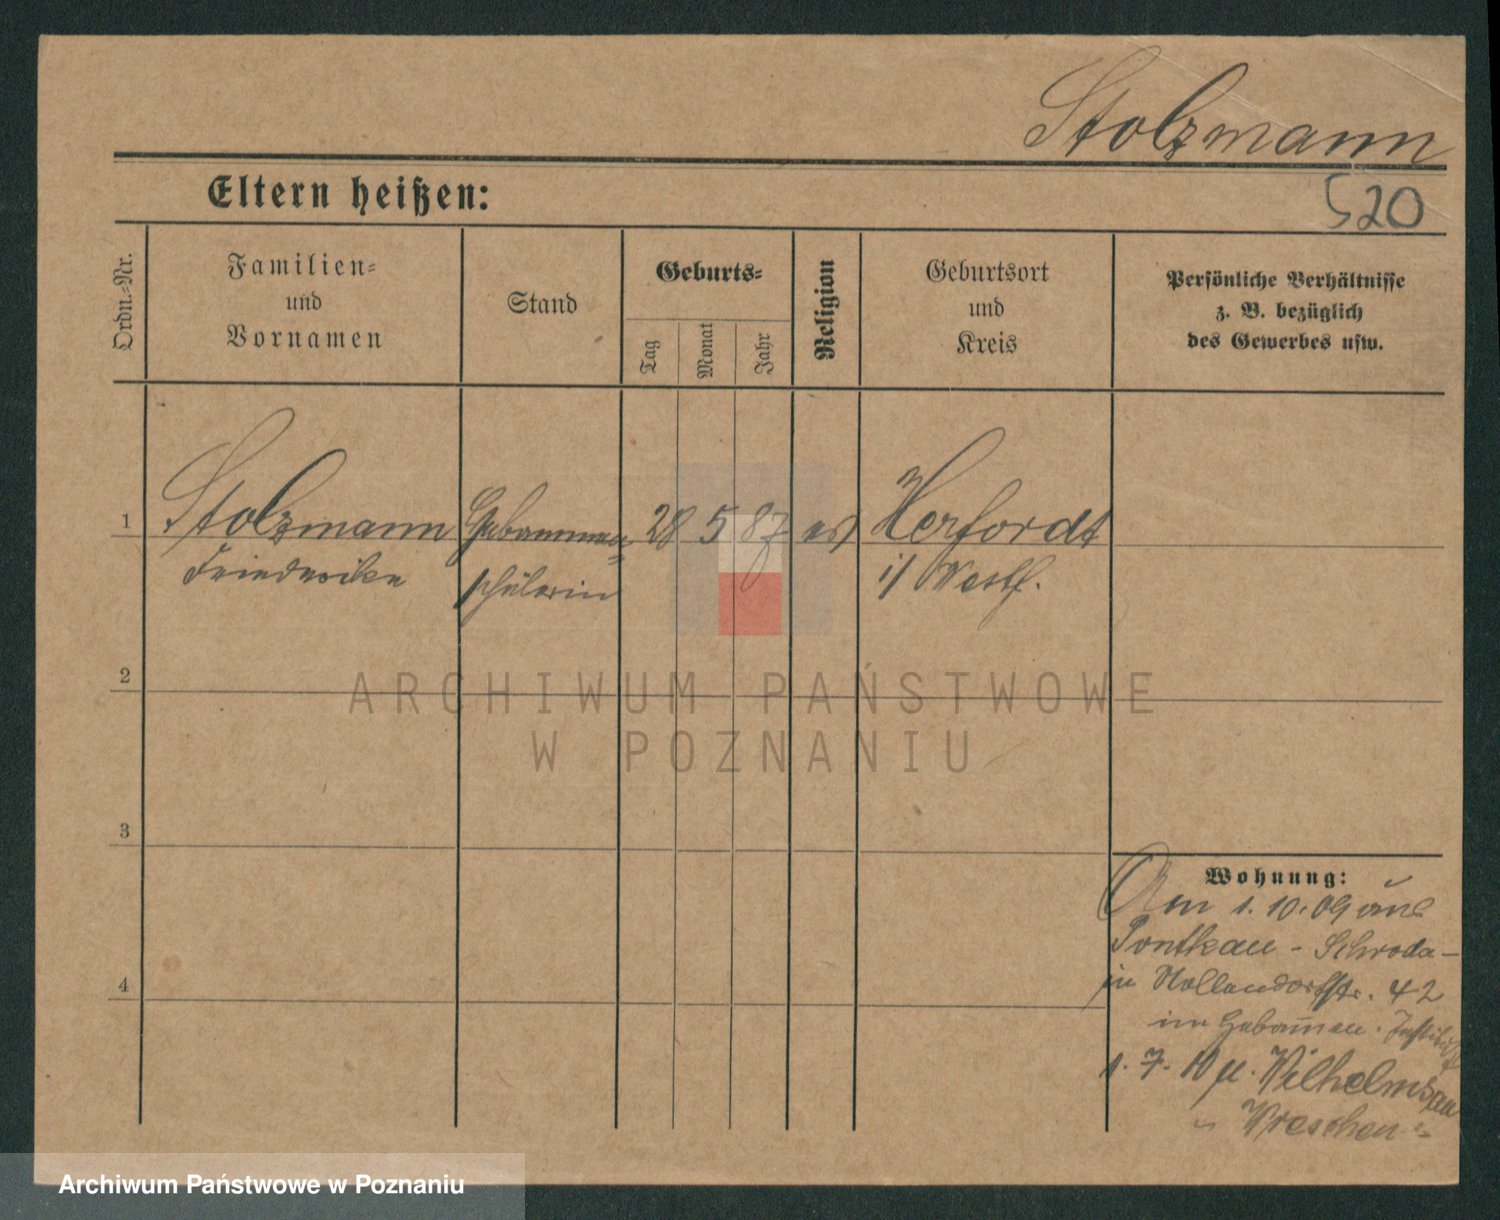 Stolzmann
Eltern heißen:
520
Ordn.-Nr.
Familien-
und
Vornamen
Stand
Geburts-
Tag
Monat
Jahr
Religion
Geburtsort
und
Kreis
Persönliche Verhältnisse
z. B. bezüglich
des Gewerbes usw.
1
Stolzmann Hebammen- 28 5 87 ev Herfordt
Friederike schülerin i/ Westf.
2
ARCHIWUM PAŃSTWOWE
W POZNANIU
3
Wohnung:
Am 1.10.09 aus
Pontkau - Schroda -
in Nollendorfstr. 42
im Hebam̄en. Institut
1. 7. 10 n. Wilhelmsau
" Wreschen "
4
Archiwum Państwowe w Poznaniu